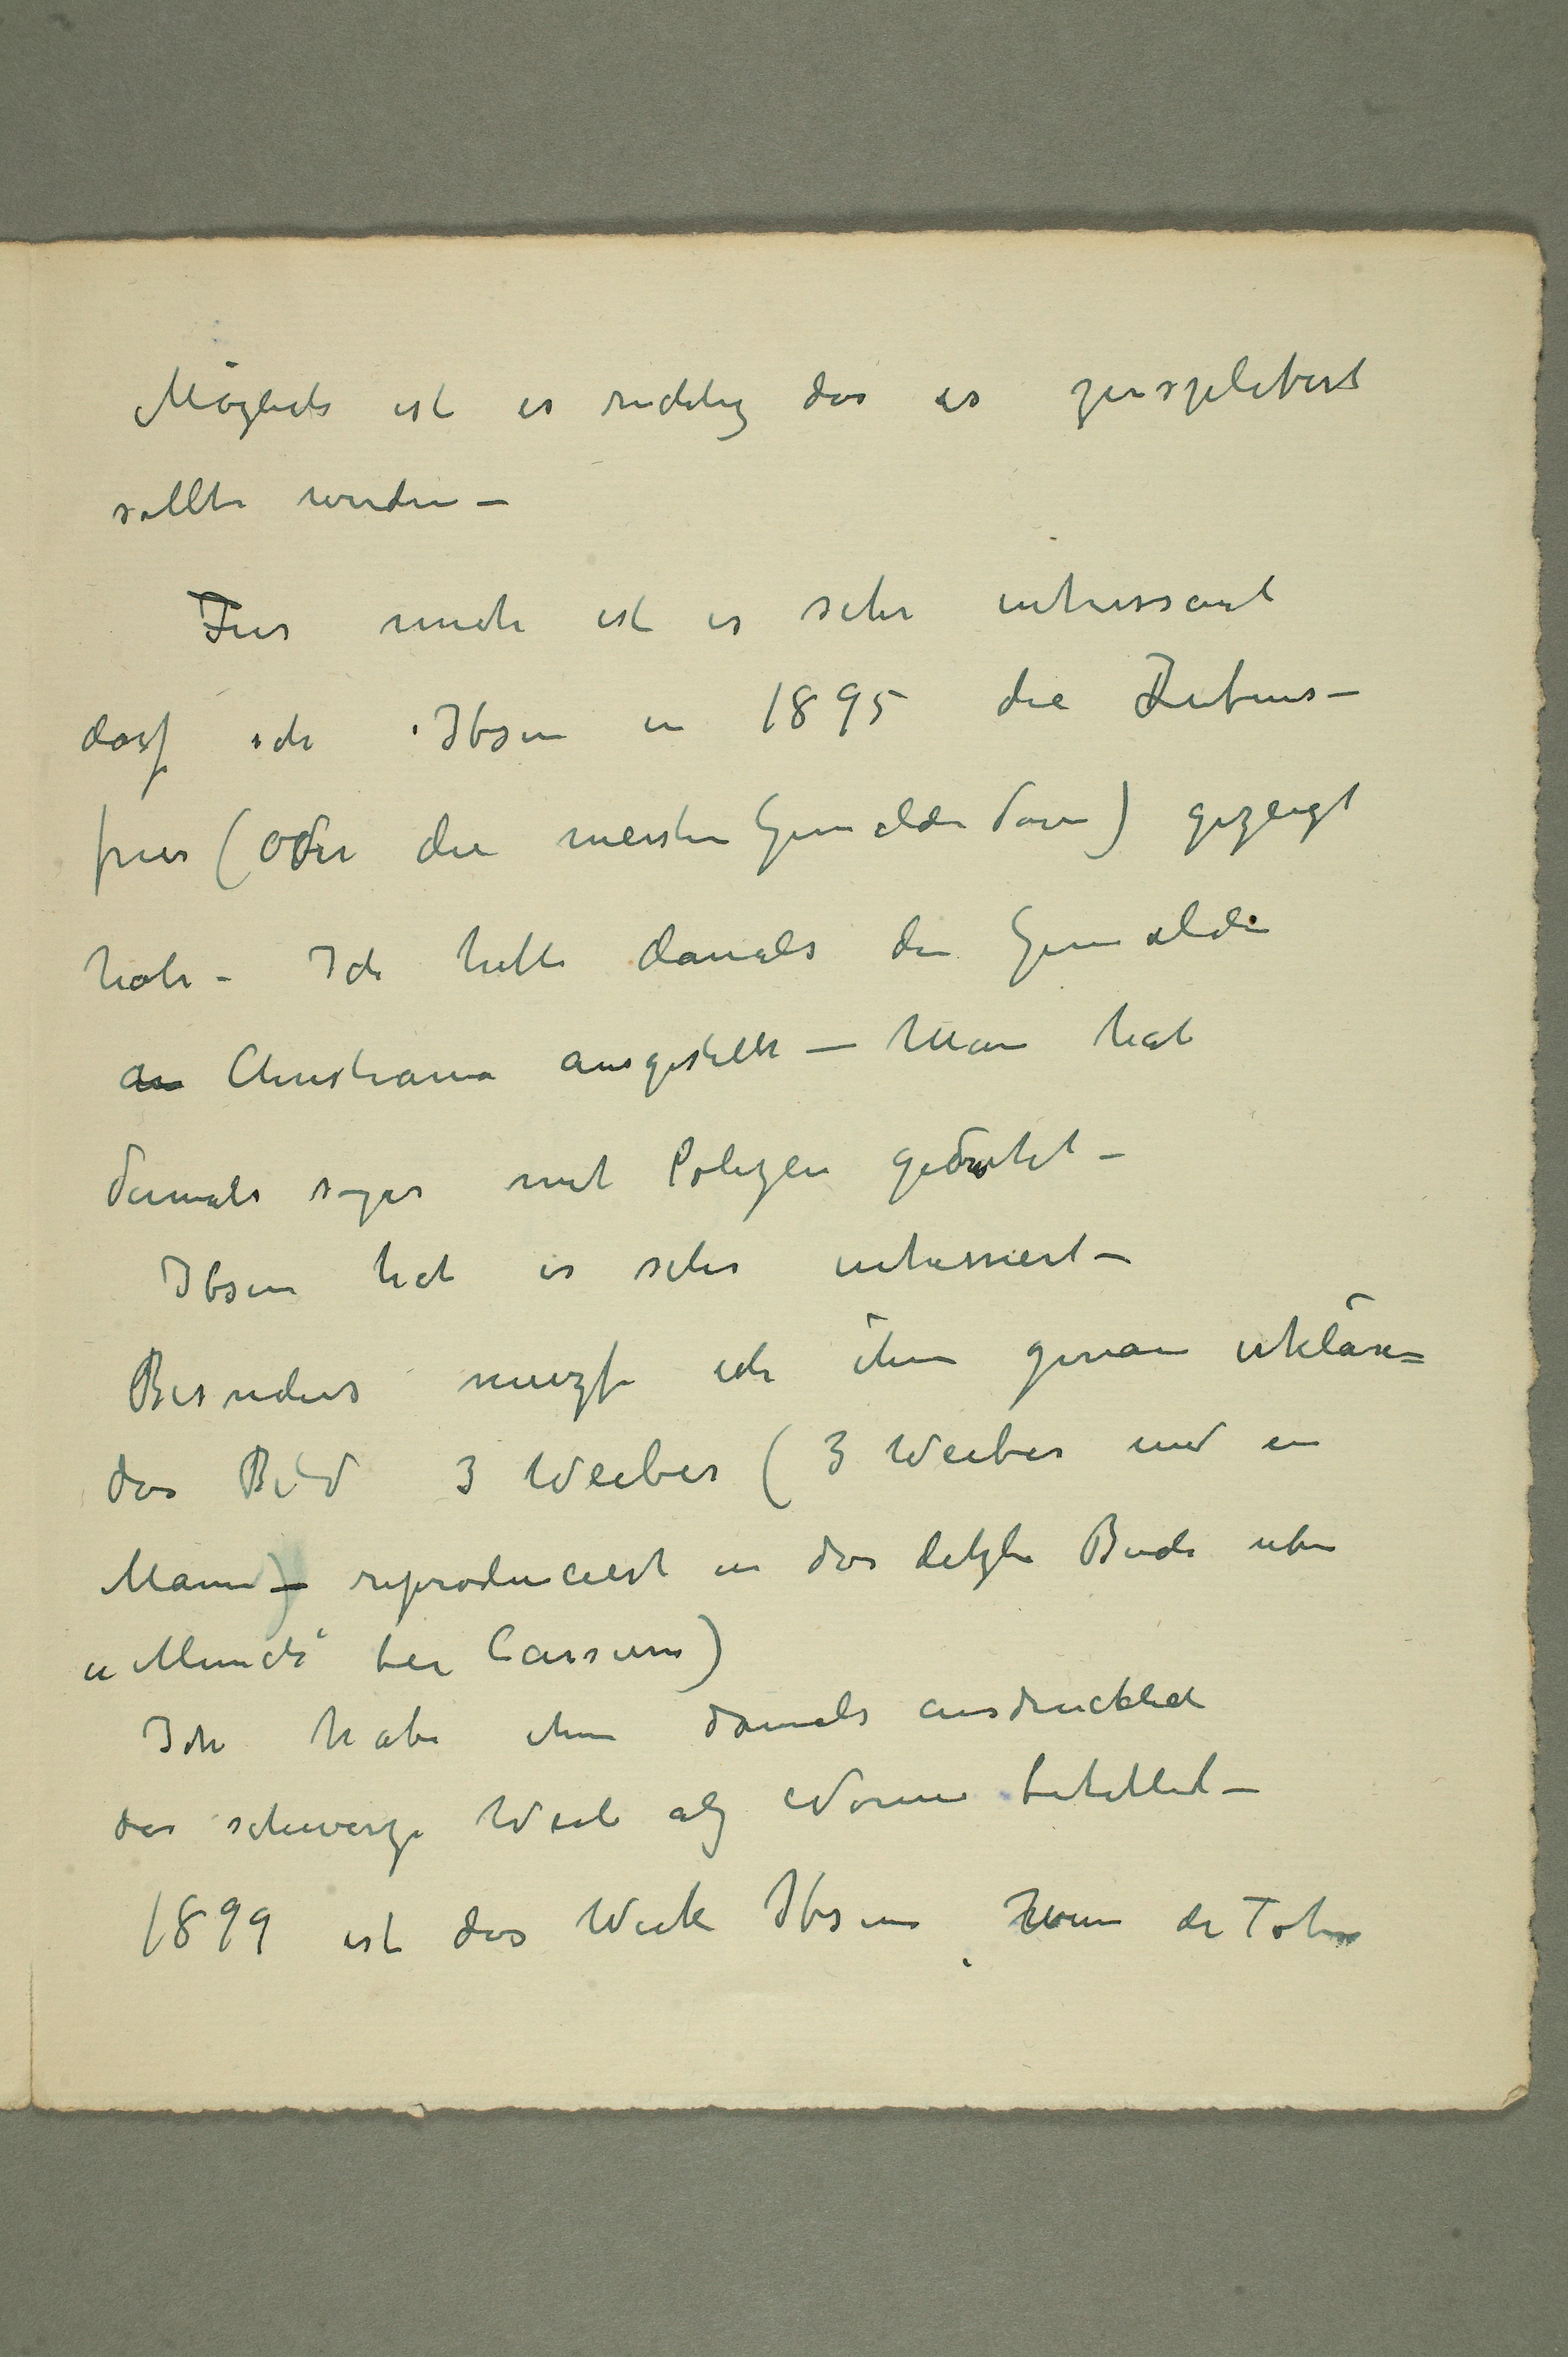 Möglich ist es richtig das es zersplitert
sollte werden –
Für mich ist es sehr intressant
dasz ich Ibsen in 1895 die Lebens-
fries (oder die meisten Gemälde davon) gezeigt
habe – Ich hatte damals die Gemälde
in Christiania ausgestellt – Man hat
damals sogar mit Polizei gedrohet –
Ibsen hat es sehr intressiert –
Besonders muszte ich ihm genau erklären
das Bild 3 Weiber (3 Weiber und ein
Mann) – reproduciert in das letzte Buch uber
„Munch“ bei Cassirer)
Ich habe ihm damals ausdrucklich
das schwarze Weib alz Nonne betittelt –
1899 ist das Werk Ibsens Wenn die Toten